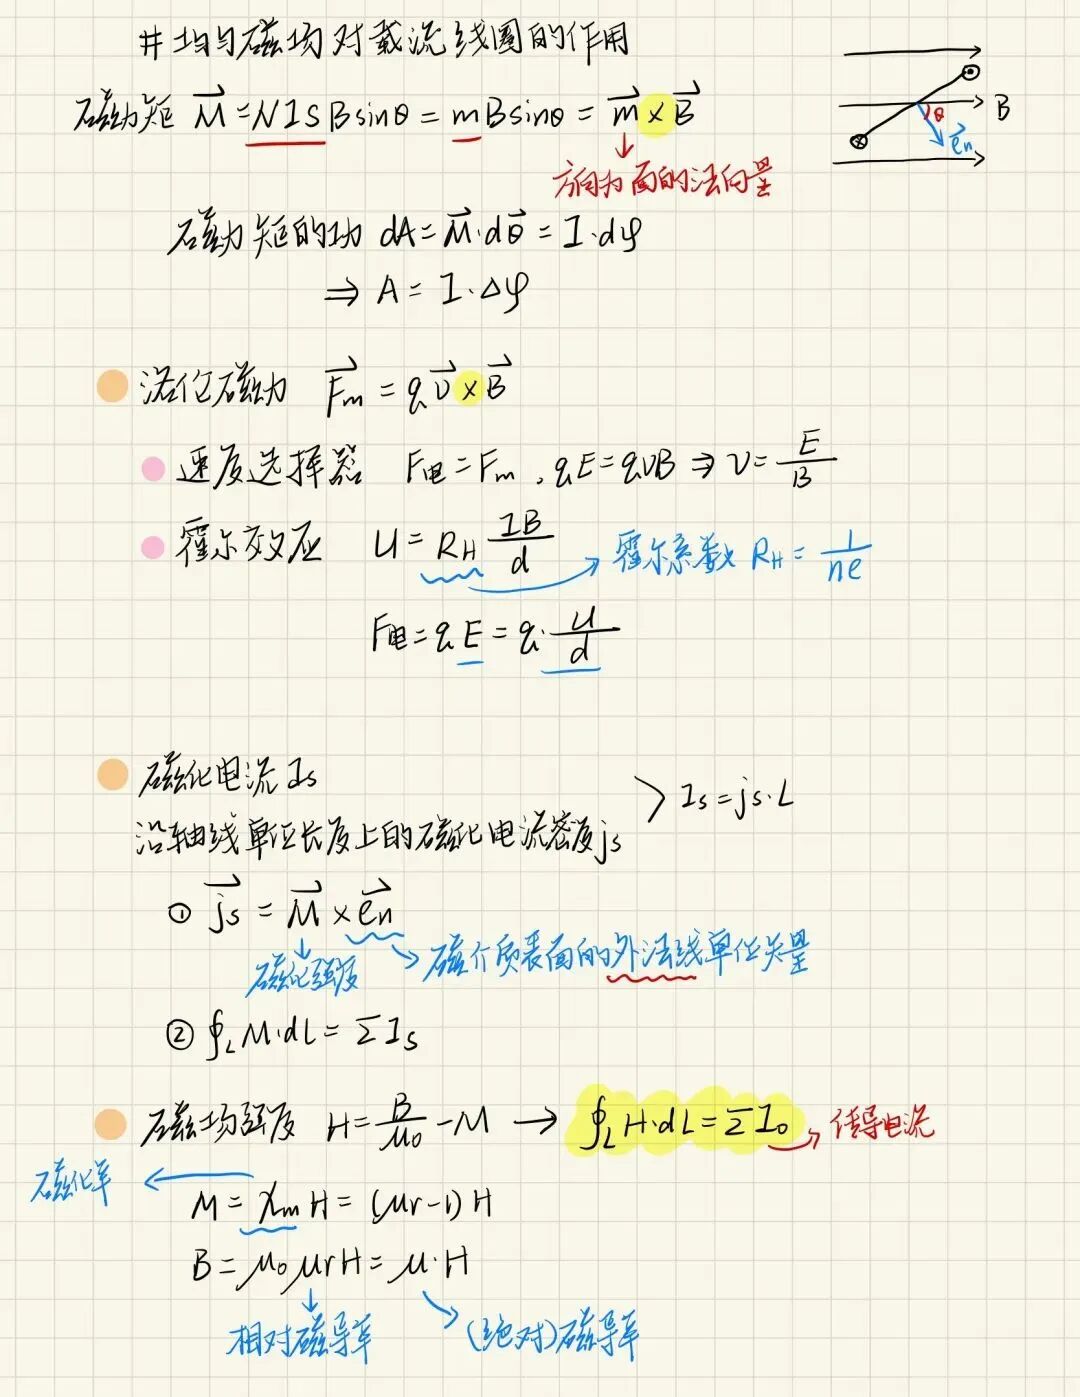 # 均匀磁场对载流线圈的作用
磁力矩 M⃗ = NISBsinθ = mBsinθ = m⃗ × B⃗
方向为面的法向量
B
θ
e⃗n
磁力矩的功 dA = M⃗·dθ⃗ = I·dφ
⇒ A = I·Δφ
洛伦磁力 F⃗m = qv⃗ × B⃗
速度选择器 F电 = Fm , qE = qvB ⇒ v = E/B
霍尔效应 U = RH IB/d → 霍尔系数 RH = 1/ne
F电 = qE = q·U/d
磁化电流 Is
沿轴线单位长度上的磁化电流密度js
> Is = js·L
① j⃗s = M⃗ × e⃗n
磁化强度 磁介质表面的外法线单位矢量
② ∮L M·dL = ΣIs
磁场强度 H = B/μ0 - M → ∮L H·dL = ΣI0 → 传导电流
磁化率
M = χm H = (μr-1)H
B = μ0μrH = μ·H
相对磁导率 (绝对)磁导率